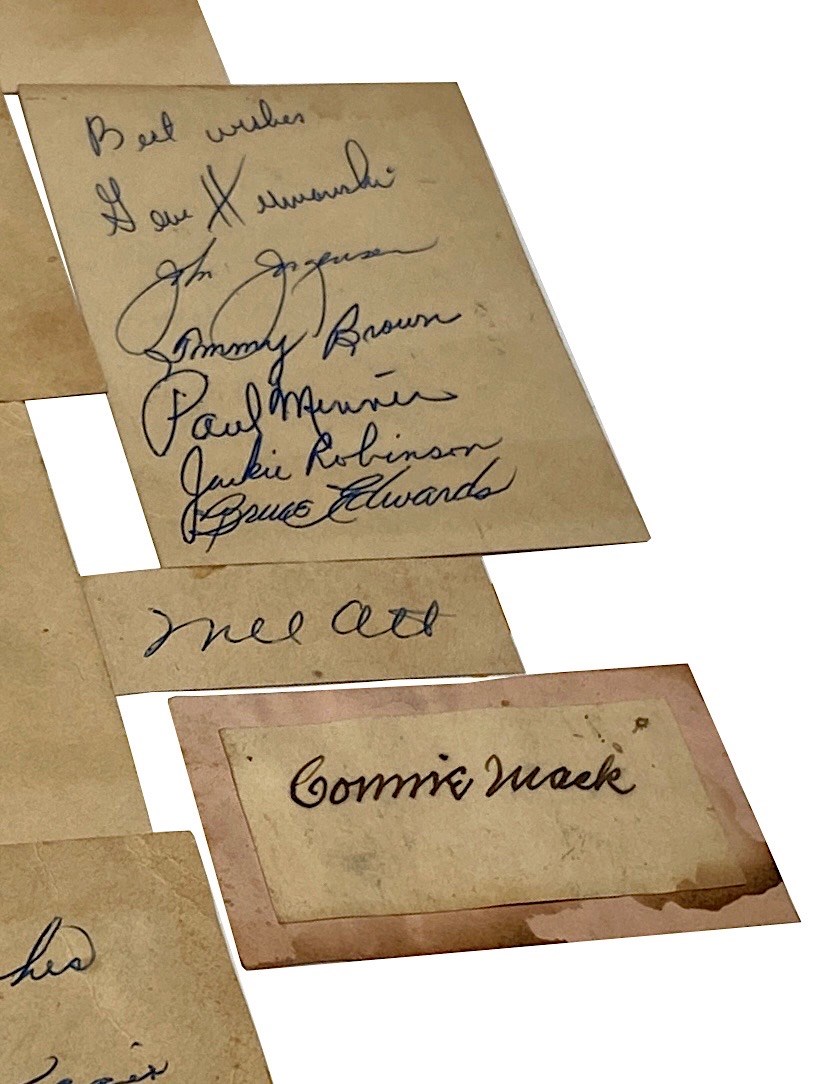 Best wishes
Gene Hermanski
John Jorgensen
Tommy Brown
Paul Minner
Jackie Robinson
Bruce Edwards
Mel Ott
Connie Mack
hes